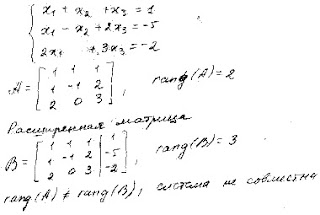 x₁ + x₂ + x₃ = 1
x₁ - x₂ + 2x₃ = -5
2x₁ + 3x₃ = -2
A = [1 1 1; 1 -1 2; 2 0 3], rang(A) = 2
Расширенная матрица
B = [1 1 1 | 1; 1 -1 2 | -5; 2 0 3 | -2], rang(B) = 3
rang(A) ≠ rang(B), система не совместна